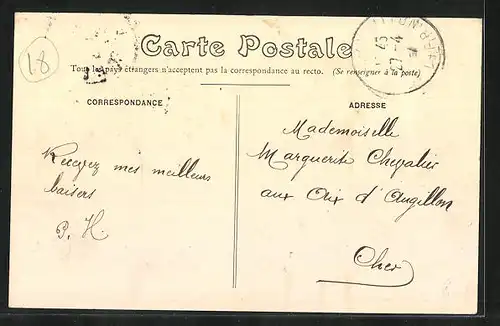 18
Carte Postale
Tous les pays étrangers n'acceptent pas la correspondance au recto. (Se renseigner à la poste)
CORRESPONDANCE
ADRESSE
Recevez mes meilleurs
baisers
P. H.
Mademoiselle
Marguerite Chevalier
aux Aix d'Angillon
Cher